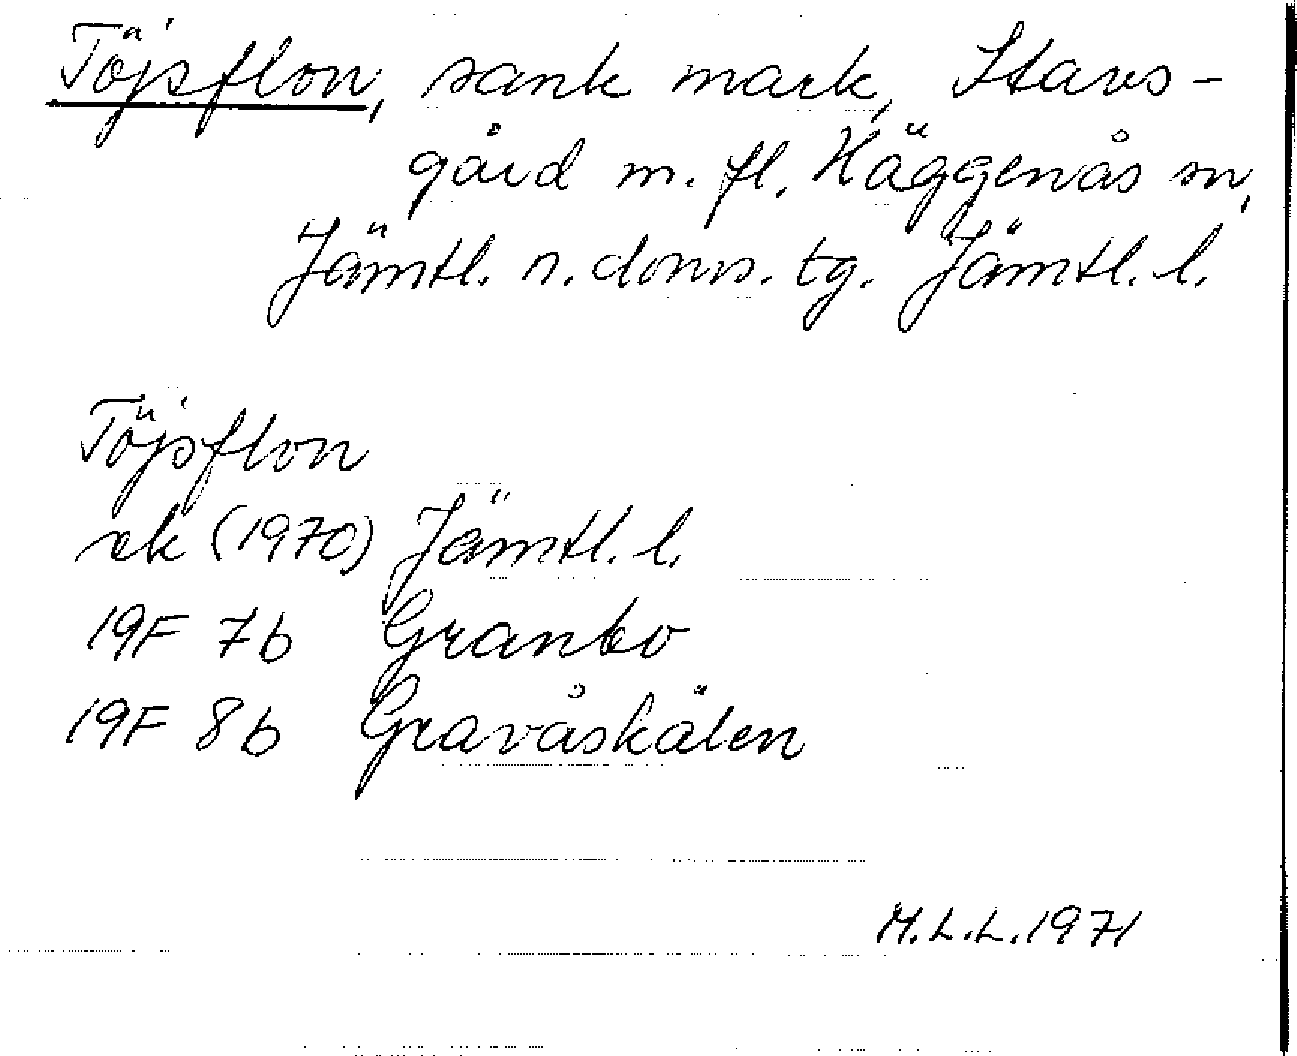 Töjsflon, sank mark, Stavs-
gård m. fl. Häggenås sn,
Jämtl. n. doms. tg. Jämtl. l.
Töjsflon
ek (1970) Jämtl. l.
19F 7b Granbo
19F 8b Gravåskälen
M.L.L. 1971